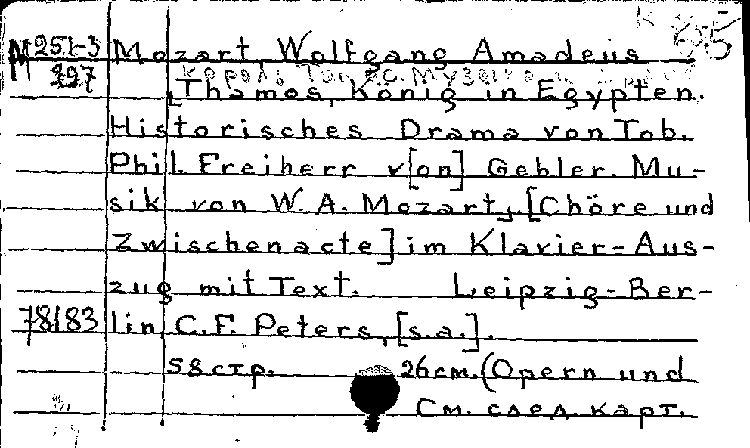 M 251-3 Mozart, Wolfgang Amadeus
227
Thamos, König in Egypten.
Historisches Drama von Tob.
Phil. Freiherr v[on] Gebler. Mu-
sik von W. A. Mozart, [Chöre und
Zwischenacte] im Klavier-Aus-
zug mit Text. Leipzig-Ber-
78183 lin, C. F. Peters, [s.a.].
58 стр. 26 см. (Opern und
См. след. карт.